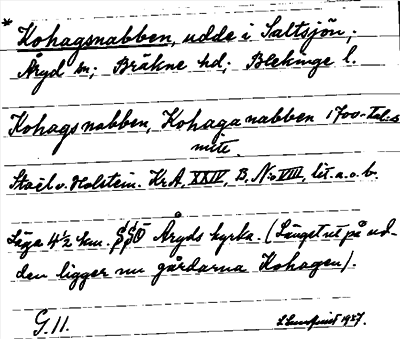 * Kohagsnabben, udde i Saltsjön;
Åryd sn; Bräkne hd; Blekinge l.
Kohagsnabben, Kohaga nabben 1700-tal:s
mitt.
Staël v. Holstein. Kr A, XXIV, B, N:o VIII, lit. a. o. b.
Läge 4 1/2 km. SSÖ Åryds kyrka. (Längst ut på ud-
den ligger nu gårdarna Kohagen).
G. 11.
1927.